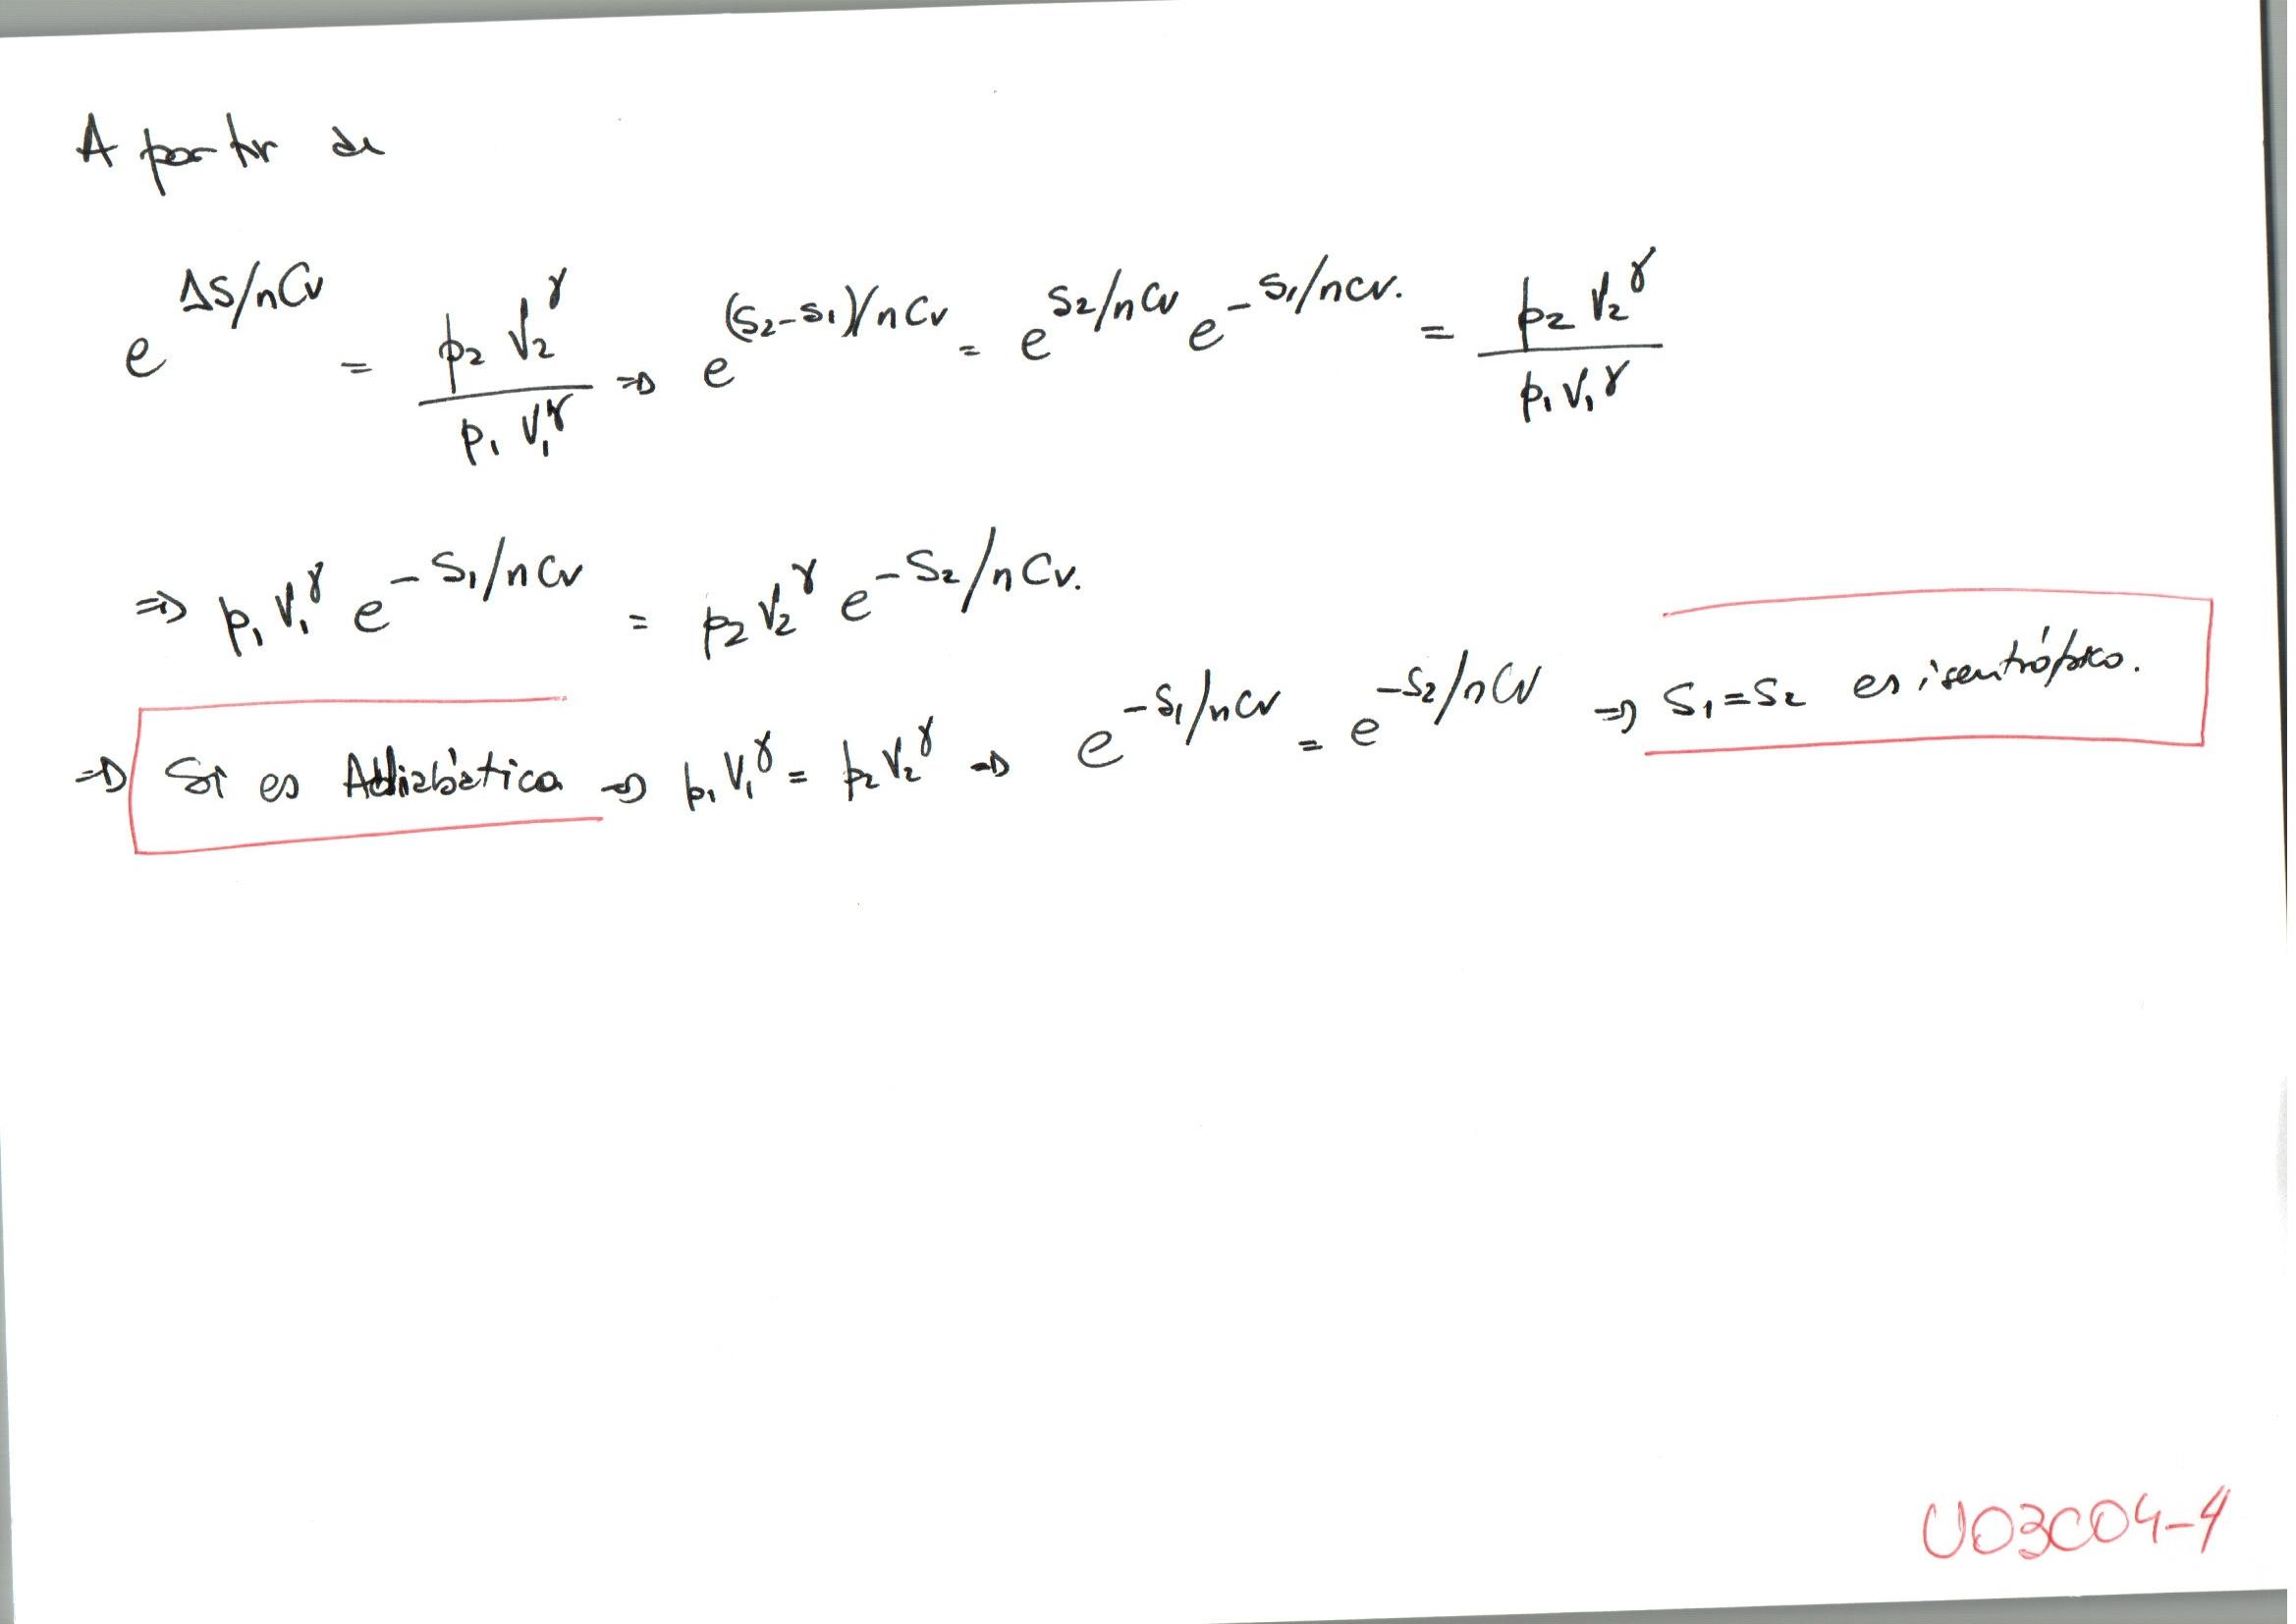 A partir de
e^{ΔS/nCv} = p₂ V₂^γ / p₁ V₁^γ ⇒ e^{(S₂-S₁)/nCv} = e^{S₂/nCv} e^{-S₁/nCv.} = p₂ V₂^γ / p₁ V₁^γ
⇒ p₁ V₁^γ e^{-S₁/nCv} = p₂ V₂^γ e^{-S₂/nCv.}
⇒ Si es Adiabática ⇒ p₁ V₁^γ = p₂ V₂^γ ⇒ e^{-S₁/nCv} = e^{-S₂/nCv} ⇒ S₁ = S₂ es isentrópico.
U03C04-4